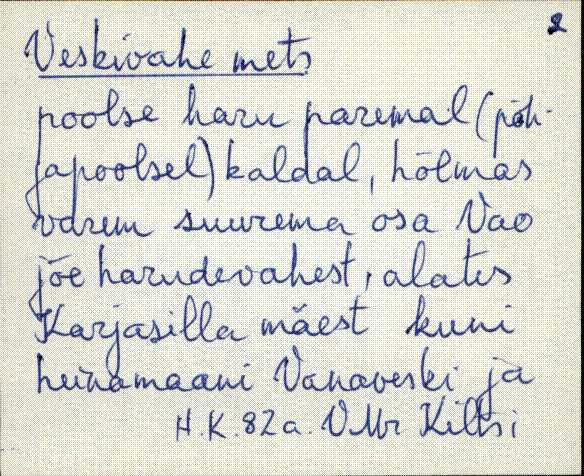 2
Veskivahe mets
poolse haru paremal (põh-
japoolsel) kaldal, hõlmas
varem suurema osa Vao
jõe harudevahest, alates
Karjasilla mäest kuni
heinamaani Vanaveski ja
H.K. 82 a. VMr Kiltsi